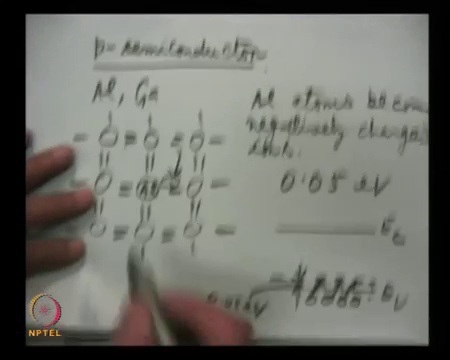 p- semiconductor
Al, Ga
Al atoms become
negatively charged
0.05 eV
Al
E_c
E_v
0.01 eV
NPTEL